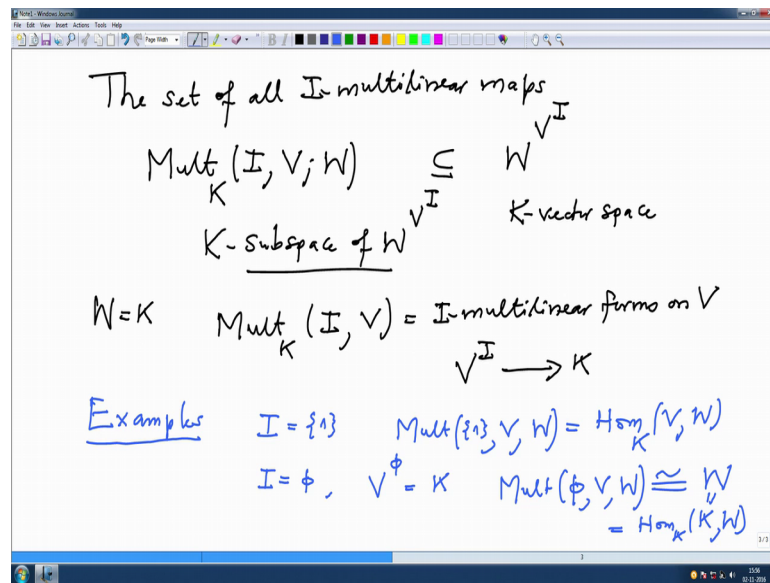 Note1 - Windows Journal
File Edit View Insert Actions Tools Help
Page Width
The set of all I-multilinear maps
Mult_K (I, V; W) ⊆ W^{V^I}
K-vector space
K-subspace of W^{V^I}
W=K Mult_K (I, V) = I-multilinear forms on V
V^I → K
Examples I = {1} Mult({1}, V, W) = Hom_K (V, W)
I = ϕ, V^ϕ = K Mult(ϕ, V, W) ≅ W
= Hom_K (K, W)
3/3
3
15:56
02-11-2016